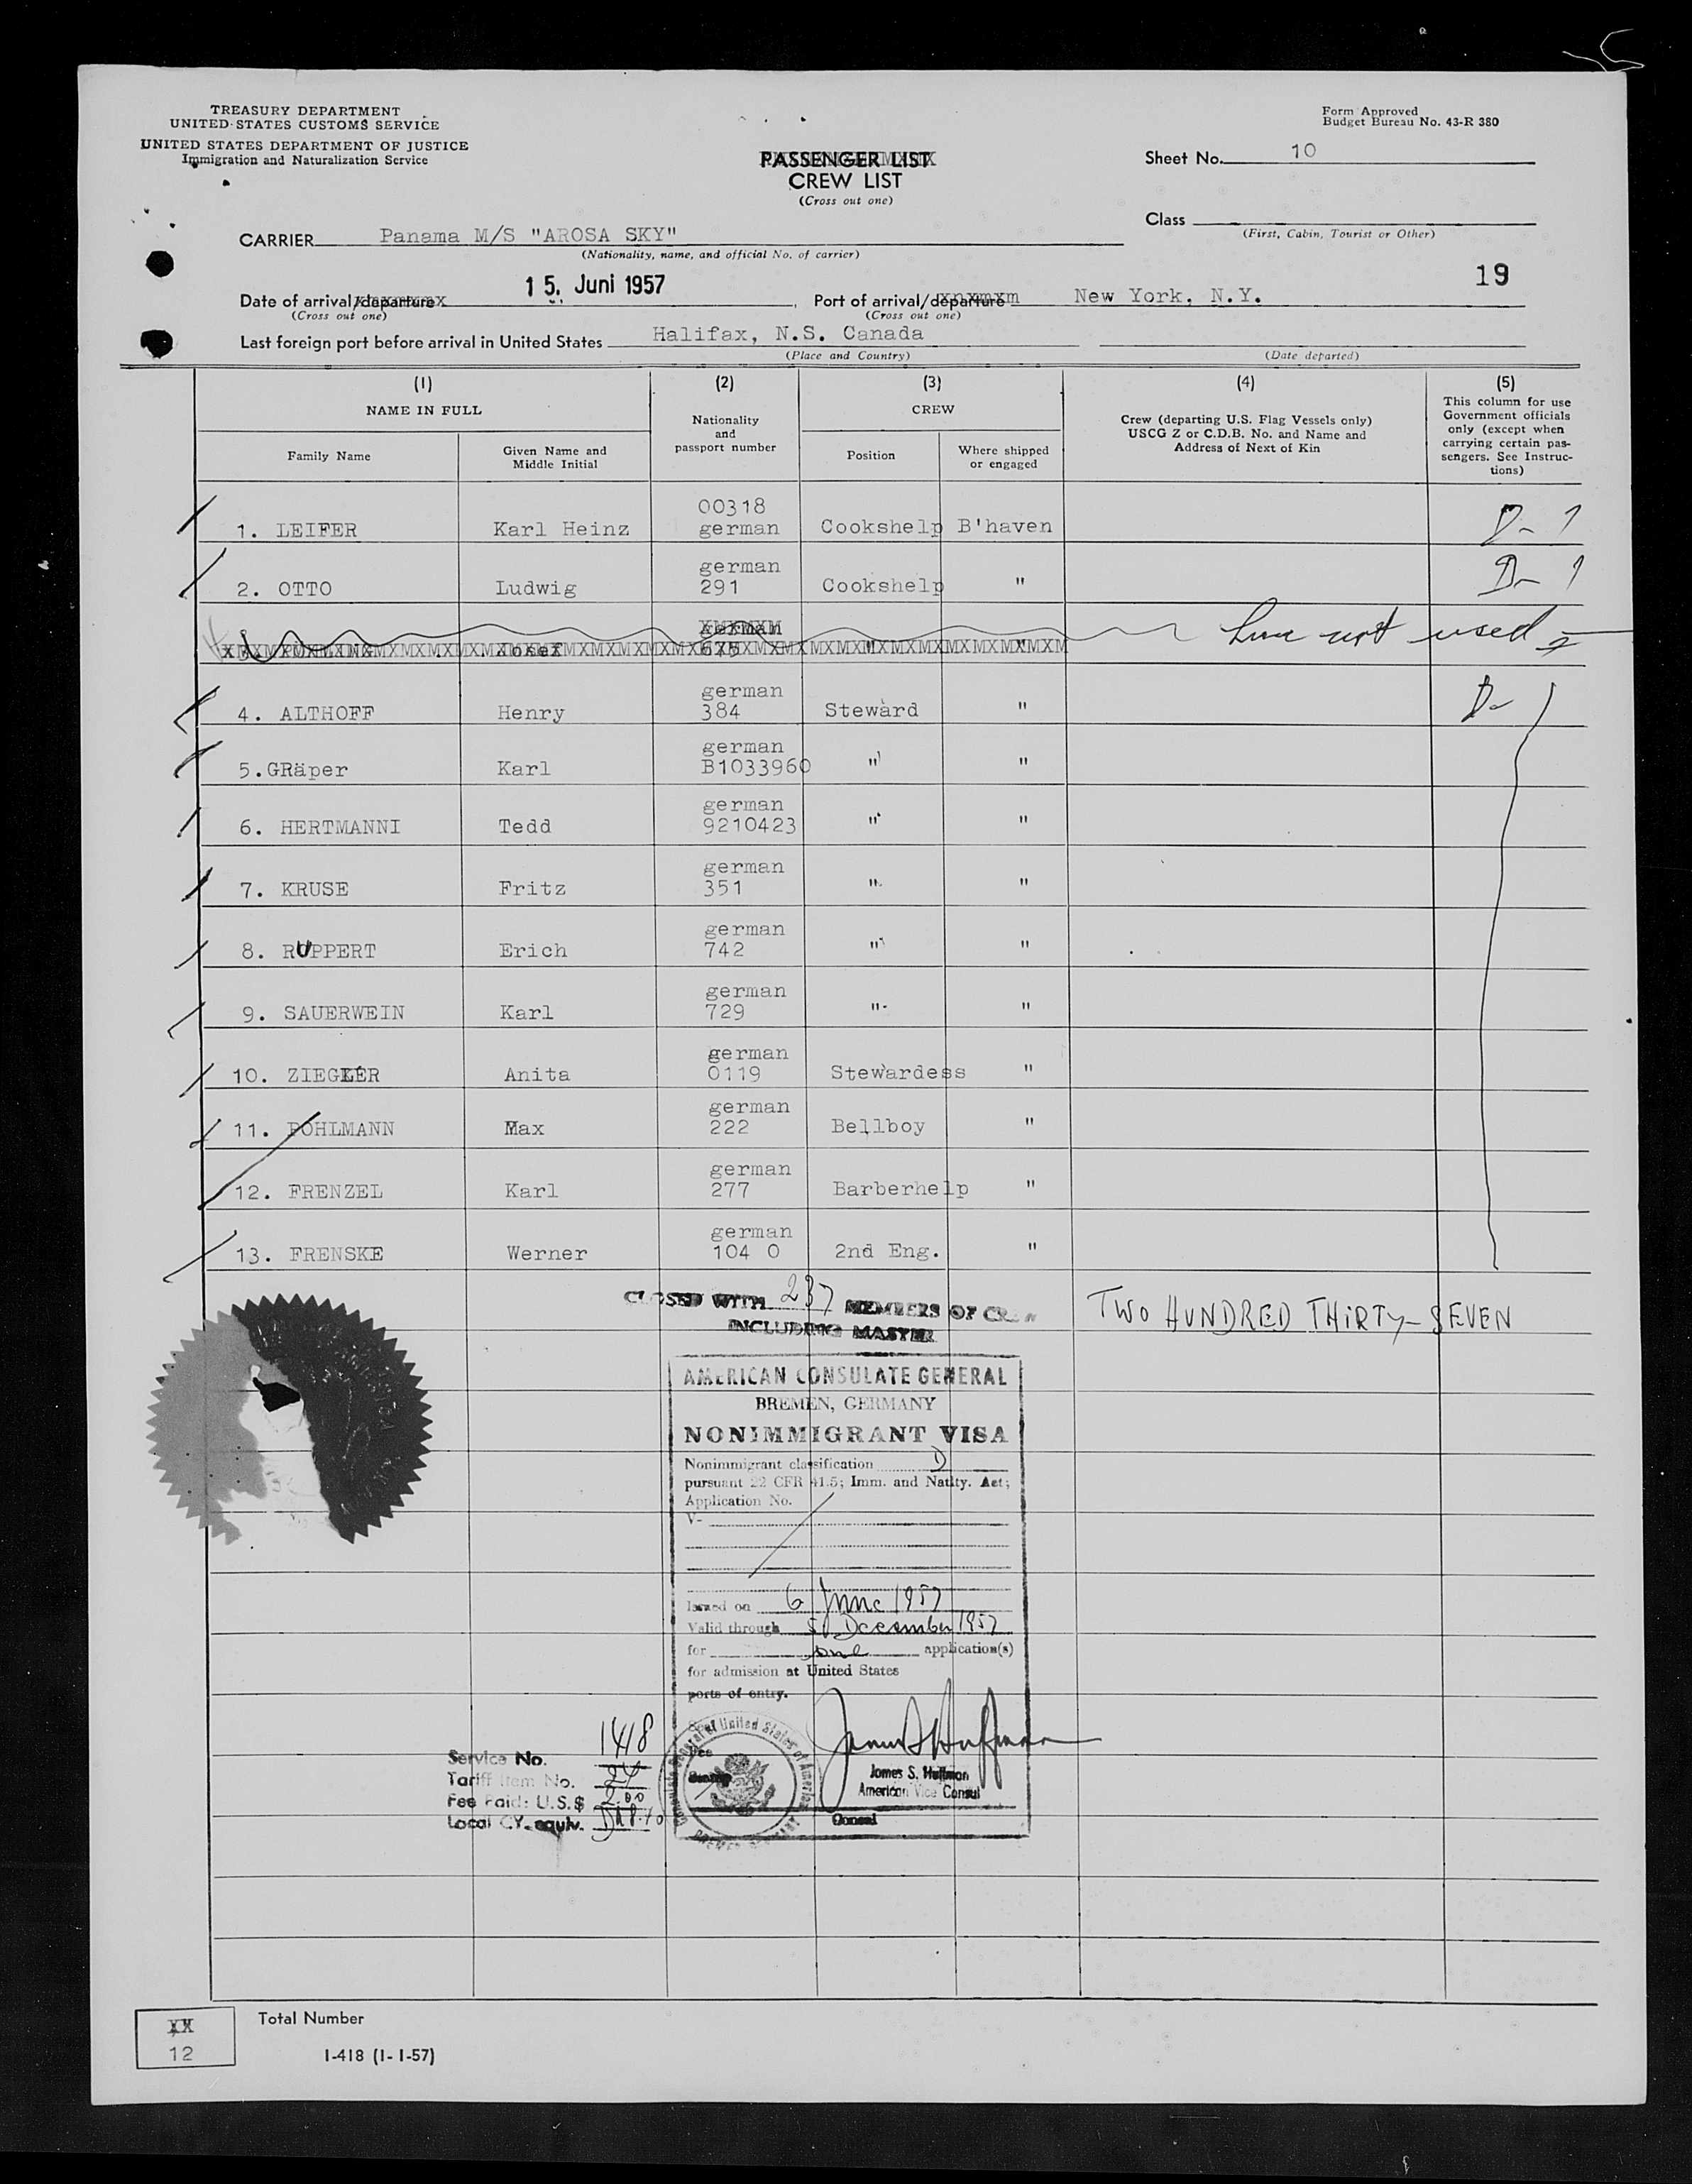 TREASURY DEPARTMENT
UNITED STATES CUSTOMS SERVICE
UNITED STATES DEPARTMENT OF JUSTICE
Immigration and Naturalization Service
Form Approved
Budget Bureau No. 43-R 380
PASSENGER LIST
CREW LIST
(Cross out one)
Sheet No. 10
Class
(First, Cabin, Tourist or Other)
CARRIER Panama M/S "AROSA SKY"
(Nationality, name, and official No. of carrier)
19
Date of arrival/departure 15. Juni 1957 Port of arrival/departure New York, N.Y.
(Cross out one) (Cross out one)
Last foreign port before arrival in United States Halifax, N.S. Canada
(Place and Country) (Date departed)
(1) (2) (3) (4) (5)
NAME IN FULL
Nationality and passport number
CREW
Crew (departing U.S. Flag Vessels only)
USCG Z or C.D.B. No. and Name and
Address of Next of Kin
This column for use
Government officials
only (except when
carrying certain pas-
sengers. See Instruc-
tions)
Family Name Given Name and Middle Initial Position Where shipped or engaged
00318
1. LEIFER Karl Heinz german Cookshelp B'haven D- 1
german
2. OTTO Ludwig 291 Cookshelp " D- 1
german
Josef 675 " " Line not used
german
4. ALTHOFF Henry 384 Steward " D-
german
5.GRäper Karl B1033960 " "
german
6. HERTMANNI Tedd 9210423 " "
german
7. KRUSE Fritz 351 " "
german
8. RUPPERT Erich 742 " "
german
9. SAUERWEIN Karl 729 " "
german
10. ZIEGLER Anita 0119 Stewardess "
german
11. POHLMANN Max 222 Bellboy "
german
12. FRENZEL Karl 277 Barberhelp "
german
13. FRENSKE Werner 104 0 2nd Eng. "
CLOSED WITH 237 MEMBERS OF CREW TWO HUNDRED THIRTY-SEVEN
INCLUDING MASTER
AMERICAN CONSULATE GENERAL
BREMEN, GERMANY
NONIMMIGRANT VISA
Nonimmigrant classification D
pursuant 22 CFR 41.5; Imm. and Natlty. Act;
Application No.
V-
Issued on 6 June 1957
Valid through 5 December 1957
for one application(s)
for admission at United States
ports of entry.
Service No. 1418
Tariff Item No. 24
Fee Paid: U.S.$ 2.00
Local CY. equiv.
James S. Huffman
American Vice Consul
Consul
12
Total Number
I-418 (1-1-57)